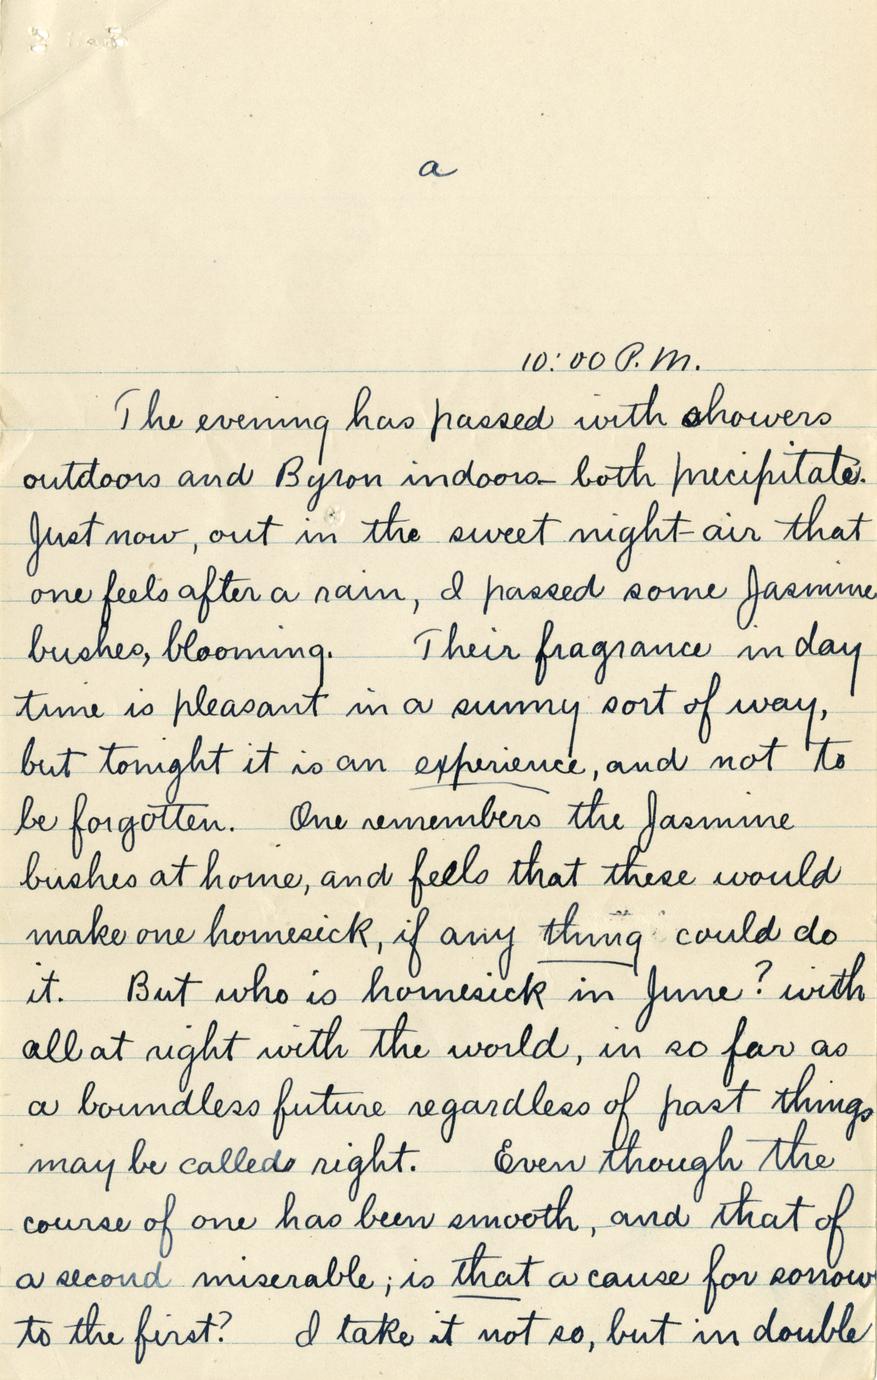 a
10:00 P.M.
The evening has passed with showers
outdoors and Byron indoors – both precipitate.
Just now, out in the sweet night-air that
one feels after a rain, I passed some Jasmine
bushes, blooming. Their fragrance in day
time is pleasant in a sunny sort of way,
but tonight it is an experience, and not to
be forgotten. One remembers the Jasmine
bushes at home, and feels that these would
make one homesick, if any thing could do
it. But who is homesick in June? with
all at right with the world, in so far as
a boundless future regardless of past things
may be called right. Even though the
course of one has been smooth, and that of
a second miserable; is that a cause for sorrow
to the first? I take it not so, but in double